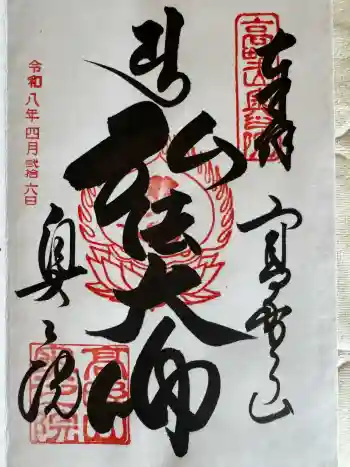 奉拝
高野山奥之院
高野山
弘法大師
奥之院
令和八年四月弐拾六日
高野山
奥之院